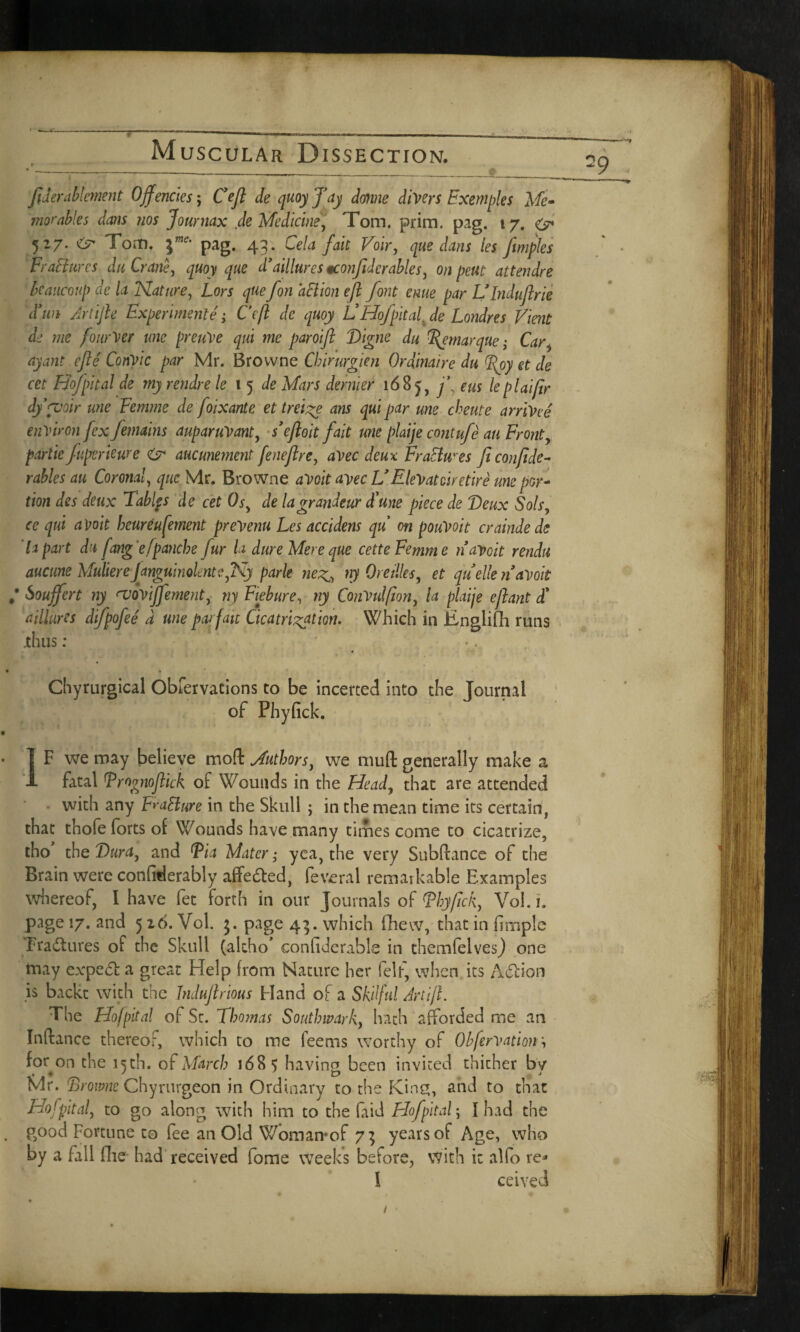 Muscular Dissection.
29
ſiderablement Offencies; C'eſt de quoy J'ay donne divers Exemples Me-
morables dans nos Journax de Medicine, Tom. prim. pag. 17. &
527. & Tom. 3me. pag. 43. Cela fait Voir, que dans les ſimples
Fractures du Crane, quoy que d'aillures conſiderables, on peut attendre
beaucoup de la Nature, Lors que ſon action eſt ſont enue par L'Induſtrie
d'un Artiſte Experimenté; C'eſt de quoy L'Hoſpital de Londres Vient
de me fourver une preuve qui me paroiſt Digne du Remarque; Car,
ayant eſté Convic par Mr. Browne Chirurgien Ordinaire du Roy et de
cet Hoſpital de my rendre le 15 de Mars dernier 1685, j', eus le plaiſir
dy'voir une Femme de ſoixante et treize ans qui par une cheute arriveé
environ ſex ſemains auparuvant, s'eſtoit fait une plaije contuſe au Front,
partie ſuperieure & aucunement feneſtre, avec deux Fractures ſi conſide-
rables au Coronal, que Mr. Browne avoit avec L'Elevatoiretirè une por-
tion des deux Tables de cet Os, de la grandeur d'une piece de Deux Sols,
ce qui avoit heureuſement prevenu Les accidens qu' on pouvoit crainde de
la part du ſang eſpanche ſur la dure Mere que cette Femm e n'avoit rendu
aucune Muliere ſanguinolente, Ny parle nez, ny Oreilles, et qu'elle n'avoit
Souffert ny voviſſement, ny Fiebure, ny Convulſion, la plaije eſtant d'
aillures diſpoſeé à une parfait Cicatrization. Which in Engliſh runs
thus:
Chyrurgical Obſervations to be incerted into the Journal
of Phyſick.
IF we may believe moſt Authors, we muſt generally make a
fatal Prognoſtick of Wounds in the Head, that are attended
with any Fracture in the Skull; in the mean time its certain,
that thoſe ſorts of Wounds have many times come to cicatrize,
tho' the Dura, and Pia Mater; yea, the very Subſtance of the
Brain were conſiderably affected, ſeveral remarkable Examples
whereof, I have ſet forth in our Journals of Phyſick, Vol. 1.
page 17. and 526. Vol. 3. page 43. which ſhew, that in ſimple
Fractures of the Skull (altho' conſiderable in themſelves) one
may expect a great Help from Nature her ſelf, when its Action
is backt with the Induſtrious Hand of a Skilful Artiſt.
The Hoſpital of St. Thomas Southwark, hath afforded me an
Inſtance thereof, which to me ſeems worthy of Obſervation;
for on the 15th. of March 1685 having been invited thither by
Mr. Browne Chyrurgeon in Ordinary to the King, and to that
Hoſpital, to go along with him to the ſaid Hoſpital; I had the
good Fortune to ſee an Old Woman of 73 years of Age, who
by a fall ſhe had received ſome weeks before, with it alſo re-
I ceived